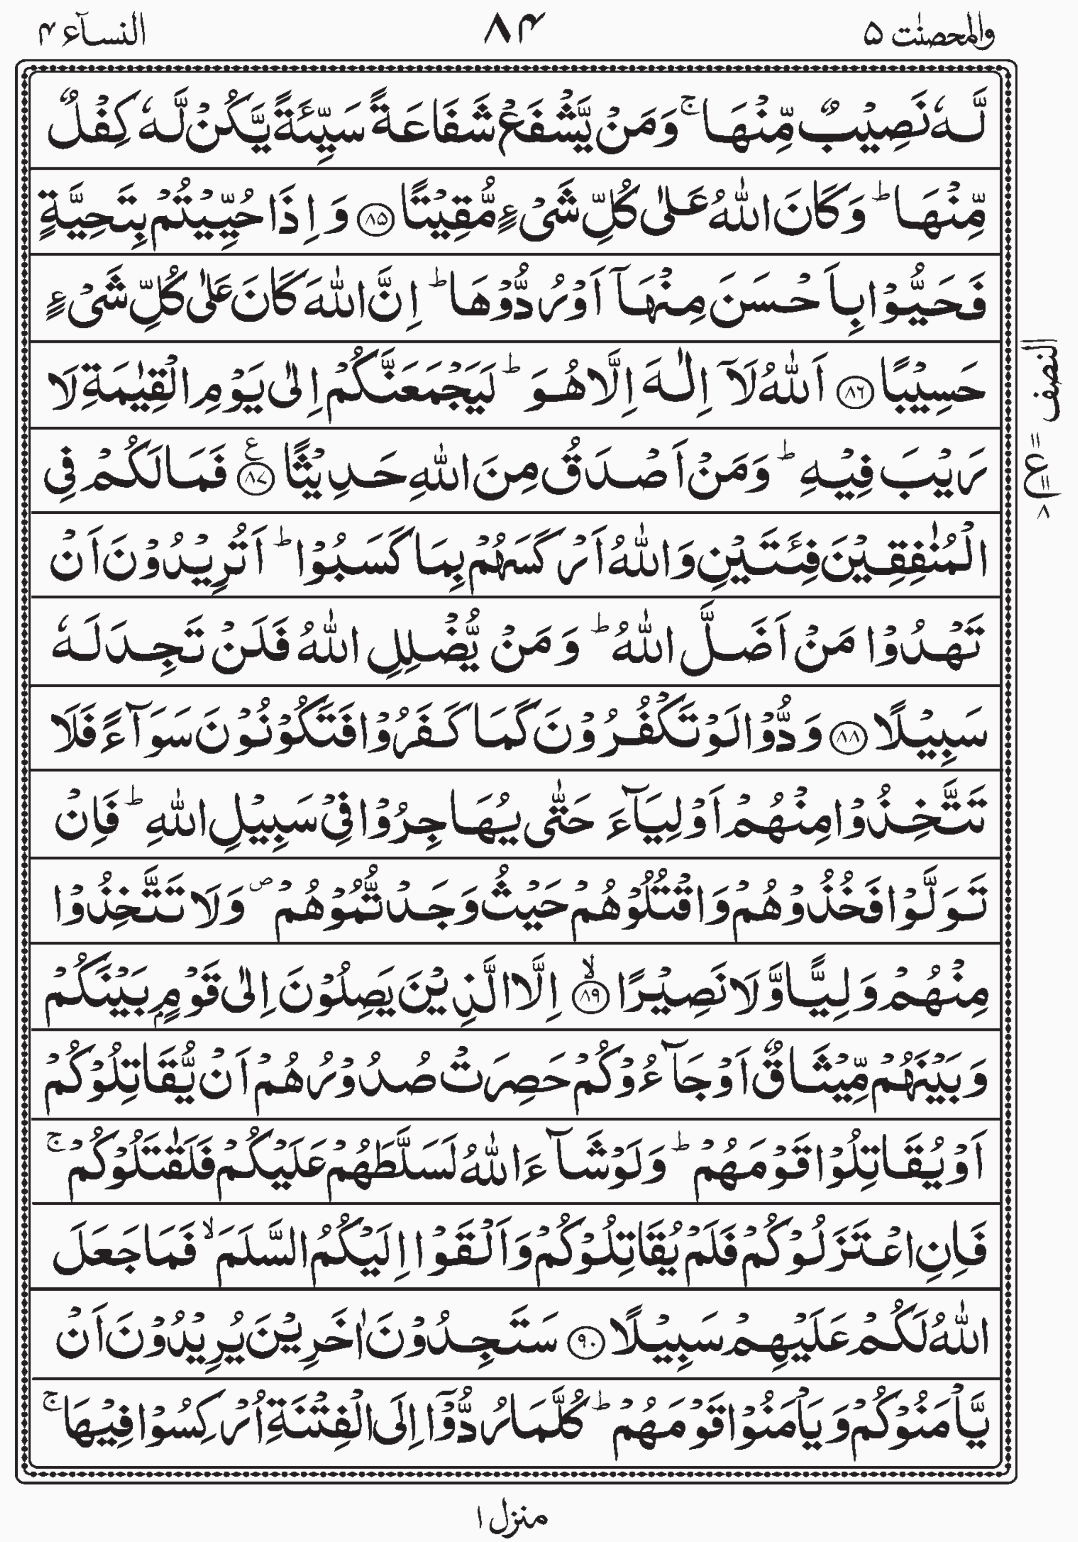 والمحصنٰت ۵ ۸۴ النسآء ۴
لَّهٗ نَصِيْبٌ مِّنْهَا ۚ وَمَنْ يَّشْفَعْ شَفَاعَةً سَيِّئَةً يَّكُنْ لَّهٗ كِفْلٌ
مِّنْهَا ؕ وَكَانَ اللّٰهُ عَلٰى كُلِّ شَىْءٍ مُّقِيْتًا ﴿۸۵﴾ وَاِذَا حُيِّيْتُمْ بِتَحِيَّةٍ
فَحَيُّوْا بِاَحْسَنَ مِنْهَآ اَوْ رُدُّوْهَا ؕ اِنَّ اللّٰهَ كَانَ عَلٰى كُلِّ شَىْءٍ
حَسِيْبًا ﴿۸۶﴾ اَللّٰهُ لَآ اِلٰهَ اِلَّا هُوَ ؕ لَيَجْمَعَنَّكُمْ اِلٰى يَوْمِ الْقِيٰمَةِ لَا
النصف
رَيْبَ فِيْهِ ؕ وَمَنْ اَصْدَقُ مِنَ اللّٰهِ حَدِيْثًا ﴿۸۷﴾ ع فَمَا لَكُمْ فِى
ع ۸
الْمُنٰفِقِيْنَ فِئَتَيْنِ وَاللّٰهُ اَرْكَسَهُمْ بِمَا كَسَبُوْا ؕ اَتُرِيْدُوْنَ اَنْ
تَهْدُوْا مَنْ اَضَلَّ اللّٰهُ ؕ وَمَنْ يُّضْلِلِ اللّٰهُ فَلَنْ تَجِدَ لَهٗ
سَبِيْلًا ﴿۸۸﴾ وَدُّوْا لَوْ تَكْفُرُوْنَ كَمَا كَفَرُوْا فَتَكُوْنُوْنَ سَوَآءً فَلَا
تَتَّخِذُوْا مِنْهُمْ اَوْلِيَآءَ حَتّٰى يُهَاجِرُوْا فِىْ سَبِيْلِ اللّٰهِ ؕ فَاِنْ
تَوَلَّوْا فَخُذُوْهُمْ وَاقْتُلُوْهُمْ حَيْثُ وَجَدْتُّمُوْهُمْ ۪ وَلَا تَتَّخِذُوْا
مِنْهُمْ وَلِيًّا وَّلَا نَصِيْرًا ﴿۸۹﴾ ۙ اِلَّا الَّذِيْنَ يَصِلُوْنَ اِلٰى قَوْمٍۭ بَيْنَكُمْ
وَبَيْنَهُمْ مِّيْثَاقٌ اَوْ جَآءُوْكُمْ حَصِرَتْ صُدُوْرُهُمْ اَنْ يُّقَاتِلُوْكُمْ
اَوْ يُقَاتِلُوْا قَوْمَهُمْ ؕ وَلَوْ شَآءَ اللّٰهُ لَسَلَّطَهُمْ عَلَيْكُمْ فَلَقٰتَلُوْكُمْ ۚ
فَاِنِ اعْتَزَلُوْكُمْ فَلَمْ يُقَاتِلُوْكُمْ وَاَلْقَوْا اِلَيْكُمُ السَّلَمَ ۙ فَمَا جَعَلَ
اللّٰهُ لَكُمْ عَلَيْهِمْ سَبِيْلًا ﴿۹۰﴾ سَتَجِدُوْنَ اٰخَرِيْنَ يُرِيْدُوْنَ اَنْ
يَّاْمَنُوْكُمْ وَيَاْمَنُوْا قَوْمَهُمْ ؕ كُلَّمَا رُدُّوْٓا اِلَى الْفِتْنَةِ اُرْكِسُوْا فِيْهَا ۚ
منزل ۱